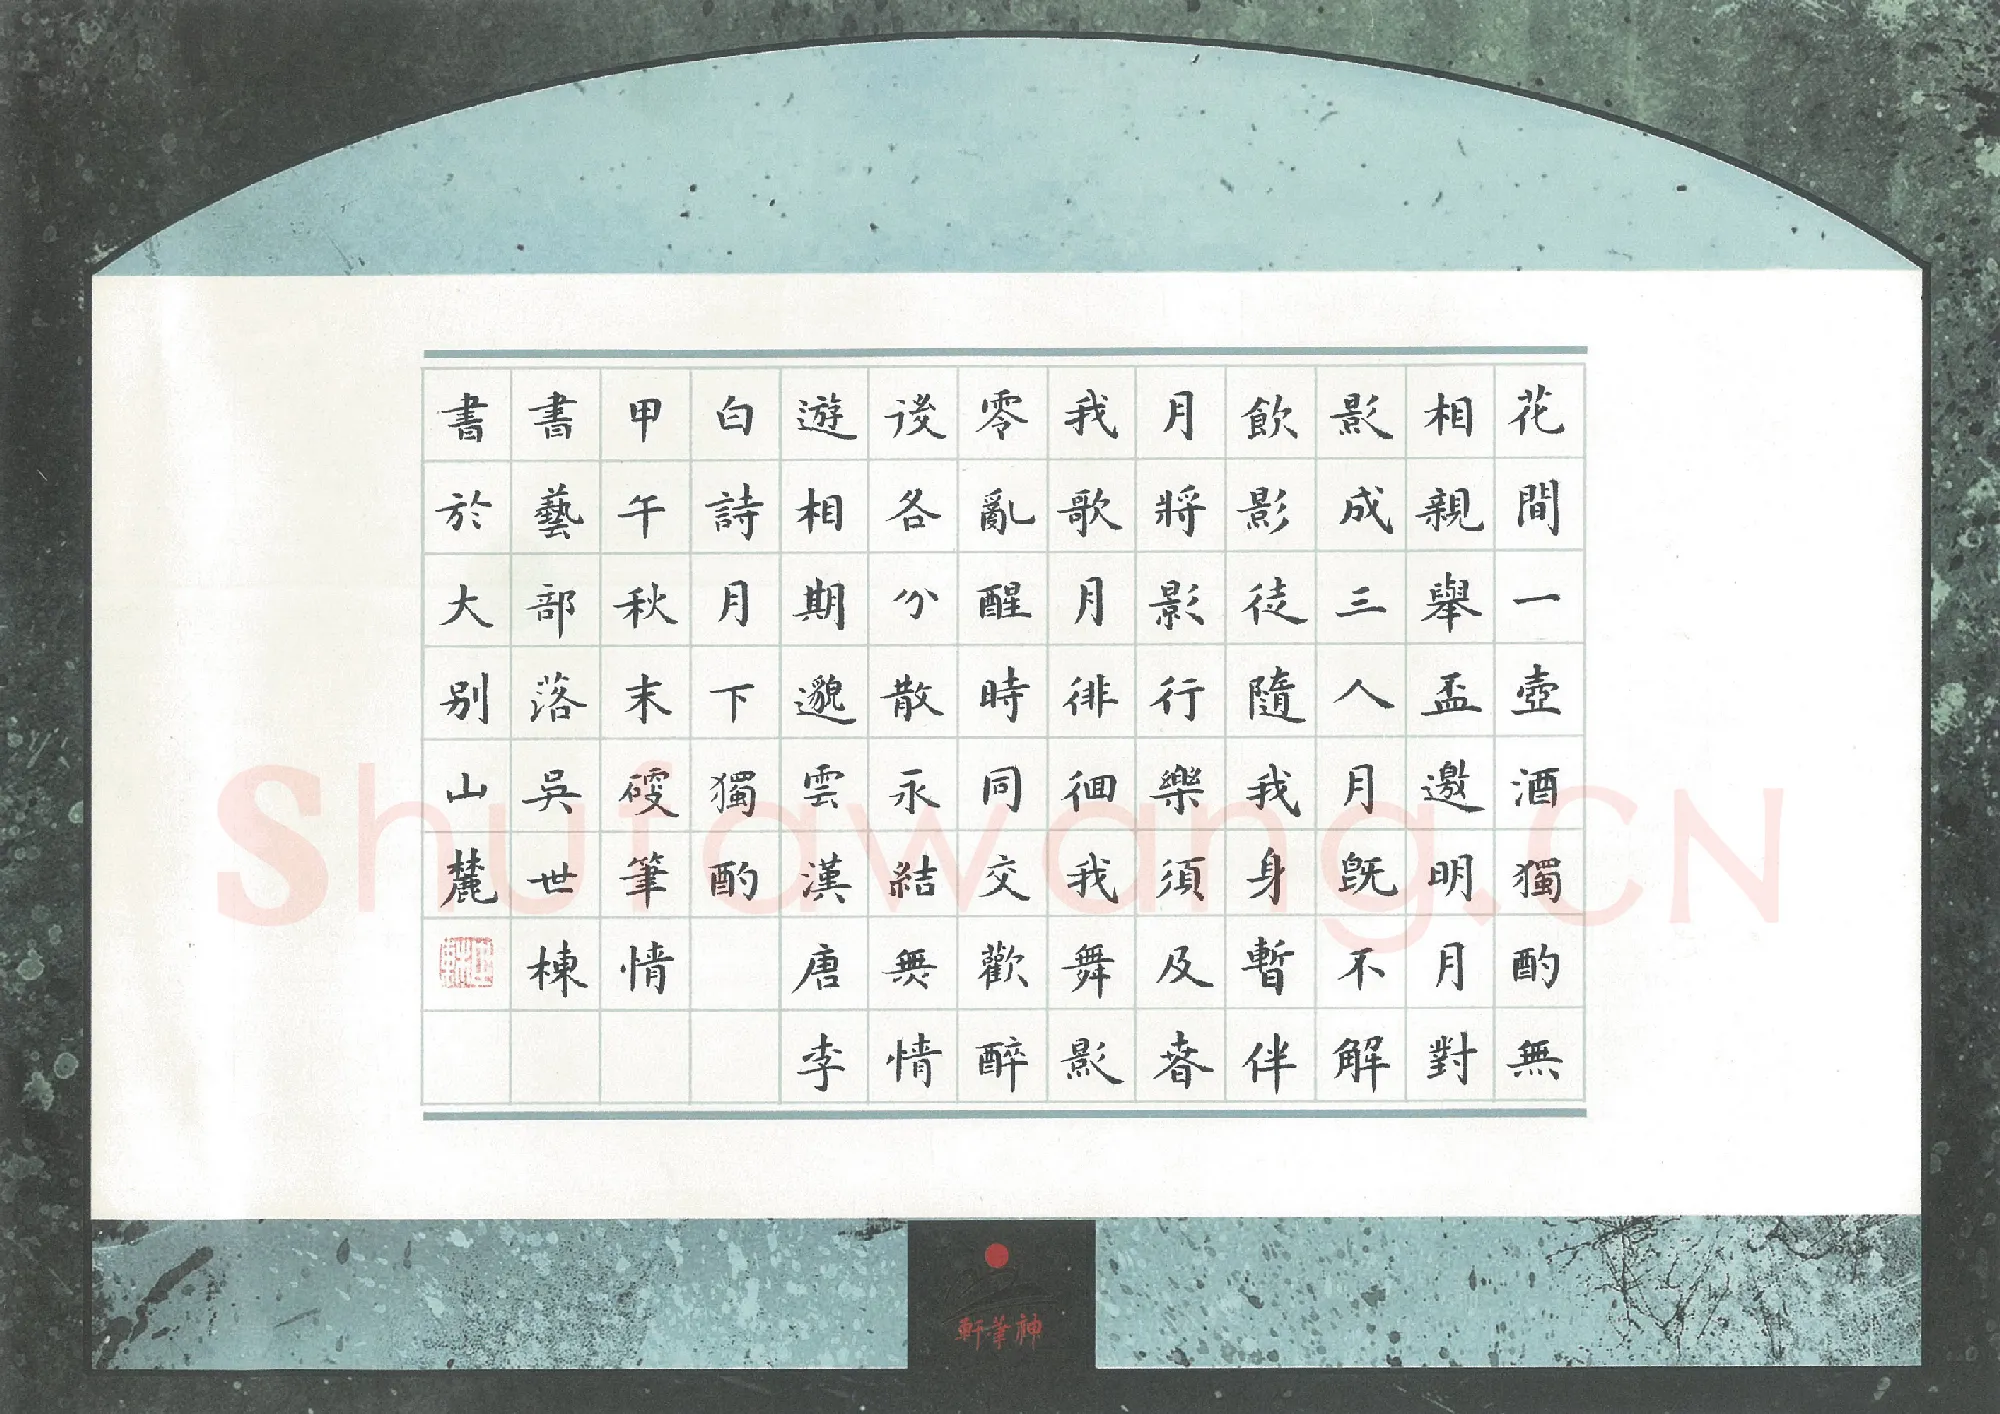 花間一壺酒獨酌無
相親舉盃邀明月對
影成三人月既不解
飲影徒隨我身暫伴
月將影行樂須及春
我歌月徘徊我舞影
零亂醒時同交歡醉
後各分散永結無情
遊相期邈雲漢唐李
白詩月下獨酌
甲午秋末硬筆情
書藝部落吳世棟
書於大別山麓
Shufawang.CN
軒筆神